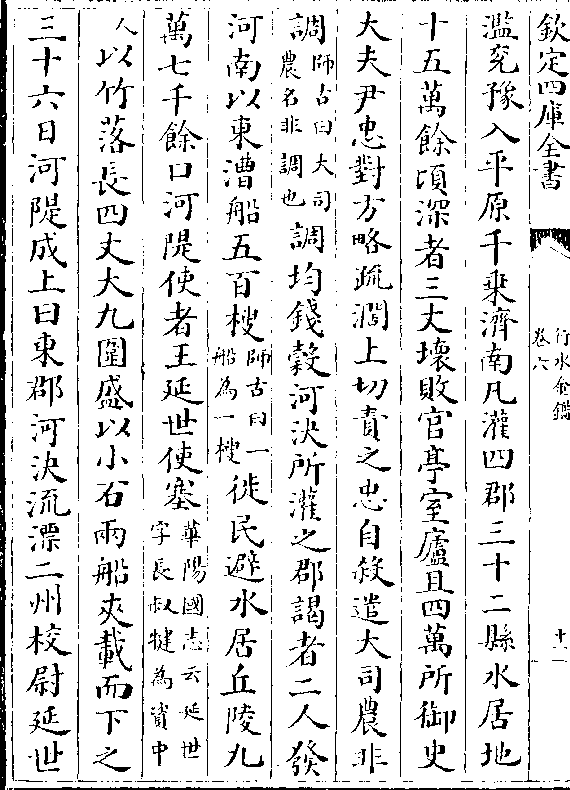 欽定四庫全書
行水金鑑
卷六
十一
濫兖豫入平原千乗濟南凡灌四郡三十二縣水居地
十五萬餘頃深者三丈壊敗官亭室廬且四萬所御史
大夫尹忠對方略疏濶上切責之忠自殺遣大司農非
調師古曰大司農名非調也調均錢榖河決所灌之郡謁者二人發
河南以東漕船五百㮴師古曰一船為一㮴徙民避水居丘陵九
萬七千餘口河隄使者王延世使塞華陽國志云延世字長叔犍為資中
人以竹落長四丈大九圍盛以小石兩船夾載而下之
三十六日河隄成上曰東郡河決流漂二州校尉延世